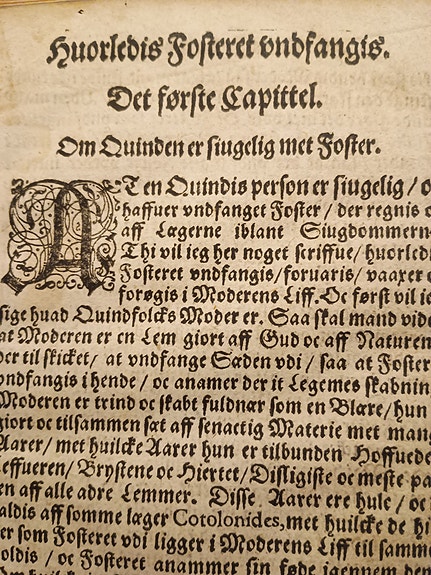 Huorledis Fosteret vndfangis.
Det første Capittel.
Om Quinden er siugelig met Foster.
ATen Quindis person er siugelig / o
haffuer vndfanget Foster / der regnis o
aff Lægerne iblant Siugdommern
Thi vil ieg her noget scriffue / huorledi
Fosteret vndfangis / foruaris / vaaxer o
forøgis i Moderens Liff. Oc først vil ie
sige huad Quindfolcks Moder er. Saa skal mand vide
at Moderen er en Lem giort aff Gud oc aff Naturen
der til skicket / at vndfange Sæden vdi / saa at Foster
vndfangis i hende / oc anamer der it Legemes skabning
Moderen er trind oc skabt fuldnær som en Blære / hun
giort oc tilsammen sæt aff senactig Materie met mang
Aarer / met huilcke Aarer hun er tilbunden Hoffuede
Leffueren / Brystene oc Hiertet / Disligiste oc meste pa
en aff alle adre Lemmer. Disse Aarer ere hule / oc
kaldis aff somme læger Cotolonides, met huilcke de hi
er som Fosteret vdi ligger i Moderens Liff til samme
holdis / oc Fosteret anammer sin føde igennem dem